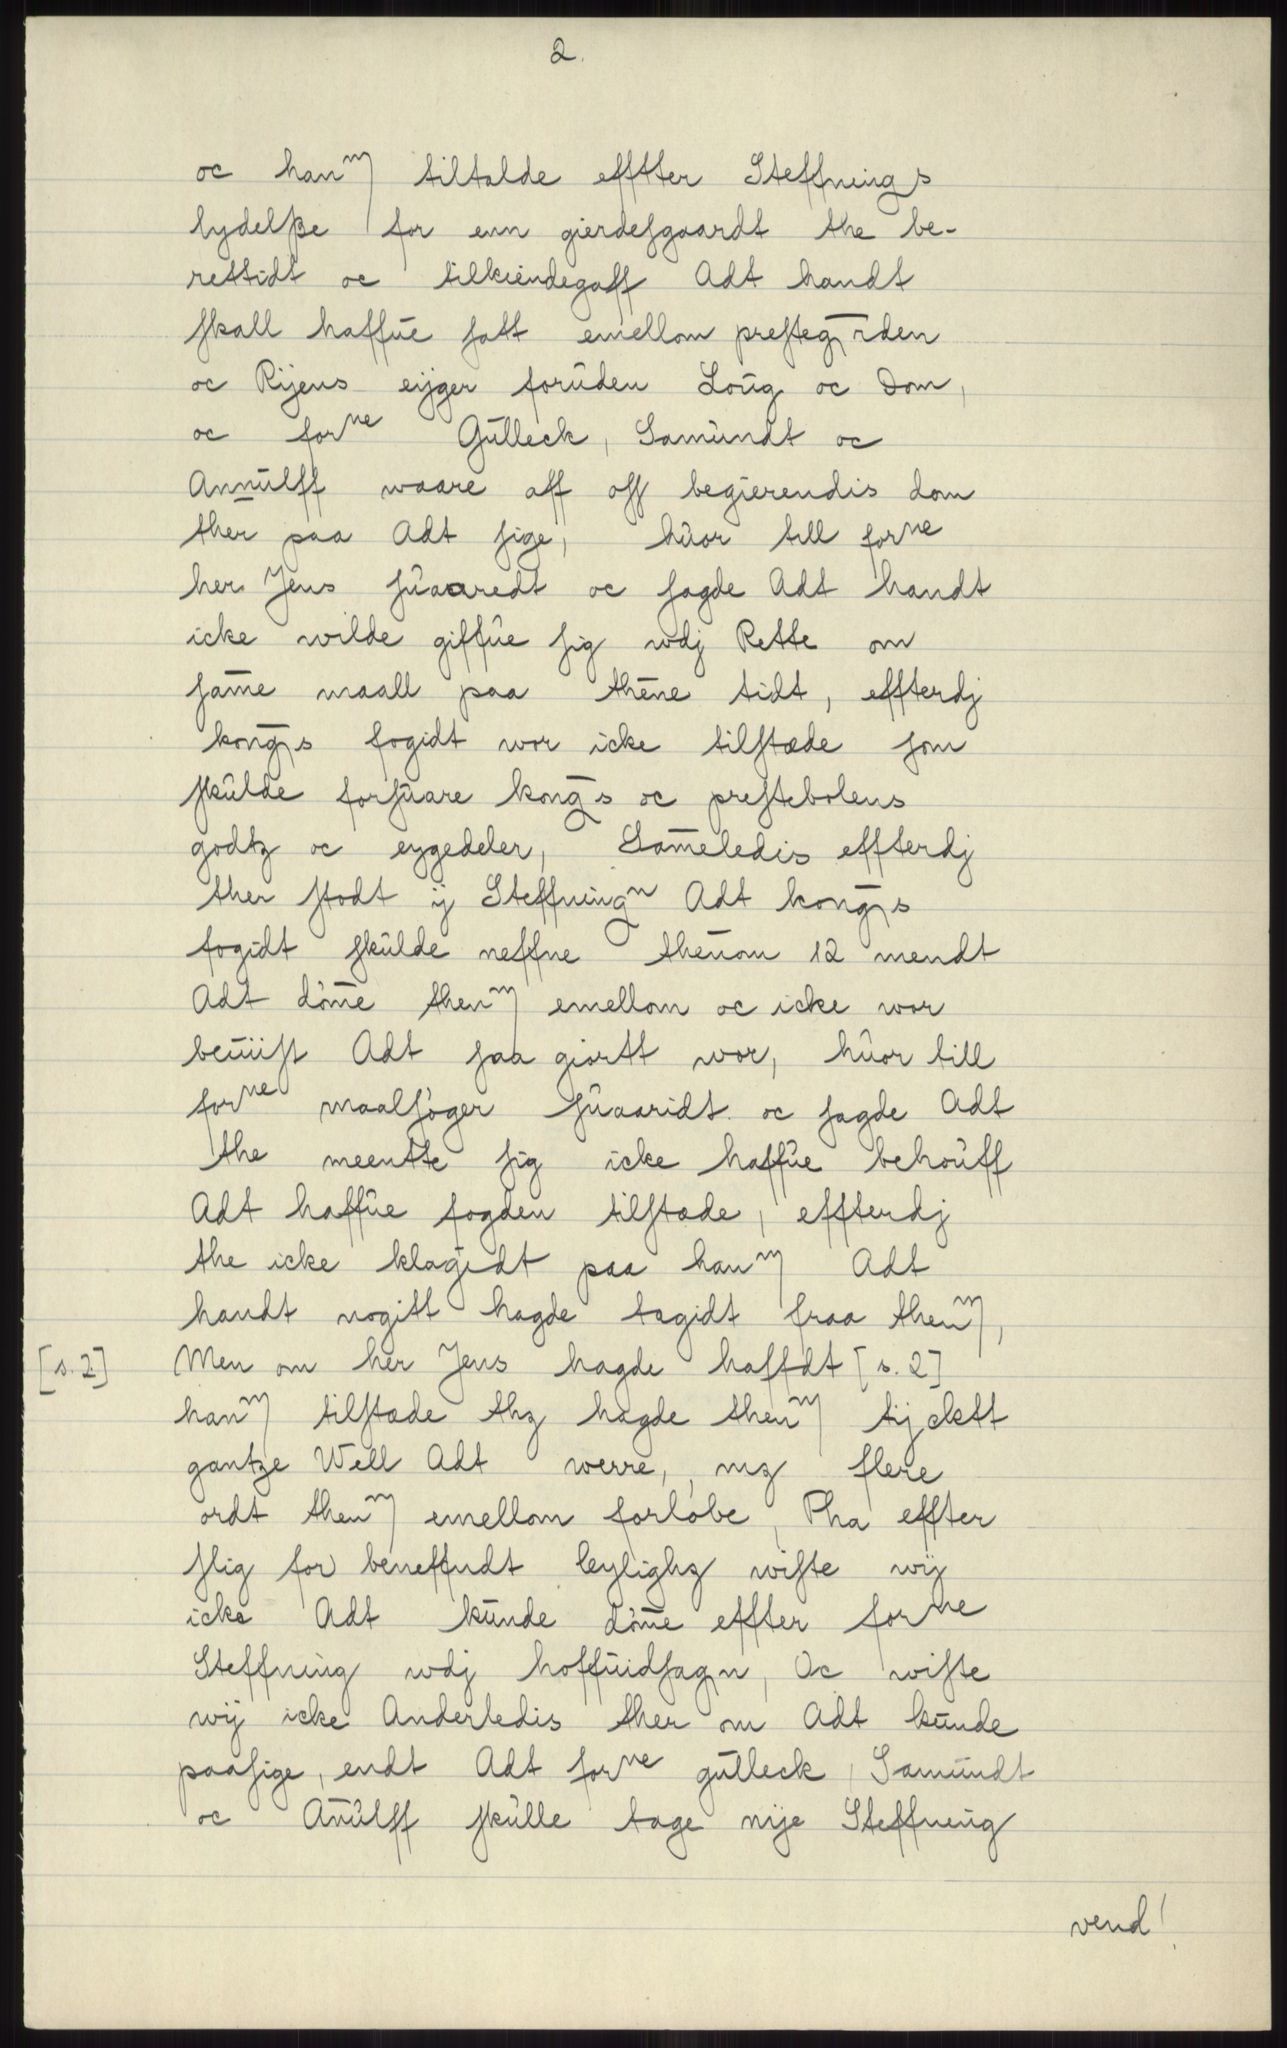 2.
oc hanᷠ tiltalde efftter Steffnings
lydelße for enn gierdesgaardt the be-
rettidt oc tilkiendegaff Adt handt
skall haffûe satt emellom presteg̅rden
oc Rijens eijger forûden Loûg oc Dom,
oc forⁿᵉ Gûlleck, Samûndt oc
Annûlff waare aff oss begierendis dom
ther paa Adt sige, hûor till forⁿᵉ
her Jens sûaaredt oc sagde Adt handt
icke wilde giffûe sig wdj Rette om
sam̅e maall paa then̅e tidt, effterdj
kong̅s fogidt wor icke tilstæde som
skûlde forsûare kong̅s oc prestebolens
godtz oc eygedeler, Sam̅eledis effterdj
ther stodt ij Steffningⁿ Adt kong̅s
fogidt skûlde neffne then̅om 12 mendt
Adt döm̅e thenᷠ emellom oc icke wor
beûiist Adt saa giortt wor, hûor till
forⁿᵉ maalsöger sûaaridt oc sagde Adt
the meentte sig icke haffûe behoûff
Adt haffûe fogden tilstæde, effterdj
the icke klagidt paa hanᷠ Adt
handt nogitt hagde tagidt fraa thenᷠ,
[s. 2] Men om her Jens hagde haffdt [s. 2]
hanᷠ tilstæde thz hagde thenᷠ tijcktt
gantze Well Adt werre, mz flere
ordt thenᷠ emellom forlöbe, Pha effter
slig for beneffndt leylighz wiste wij
icke Adt kûnde döm̅e effter forⁿᵉ
Steffning wdj hoffûidsagn, Oc wiste
wij icke Anderledis ther om Adt kûnde
paasige, endt Adt forⁿᵉ gûlleck, Samûndt
oc An̅ûlff skûlle tage nije Steffning
vend!